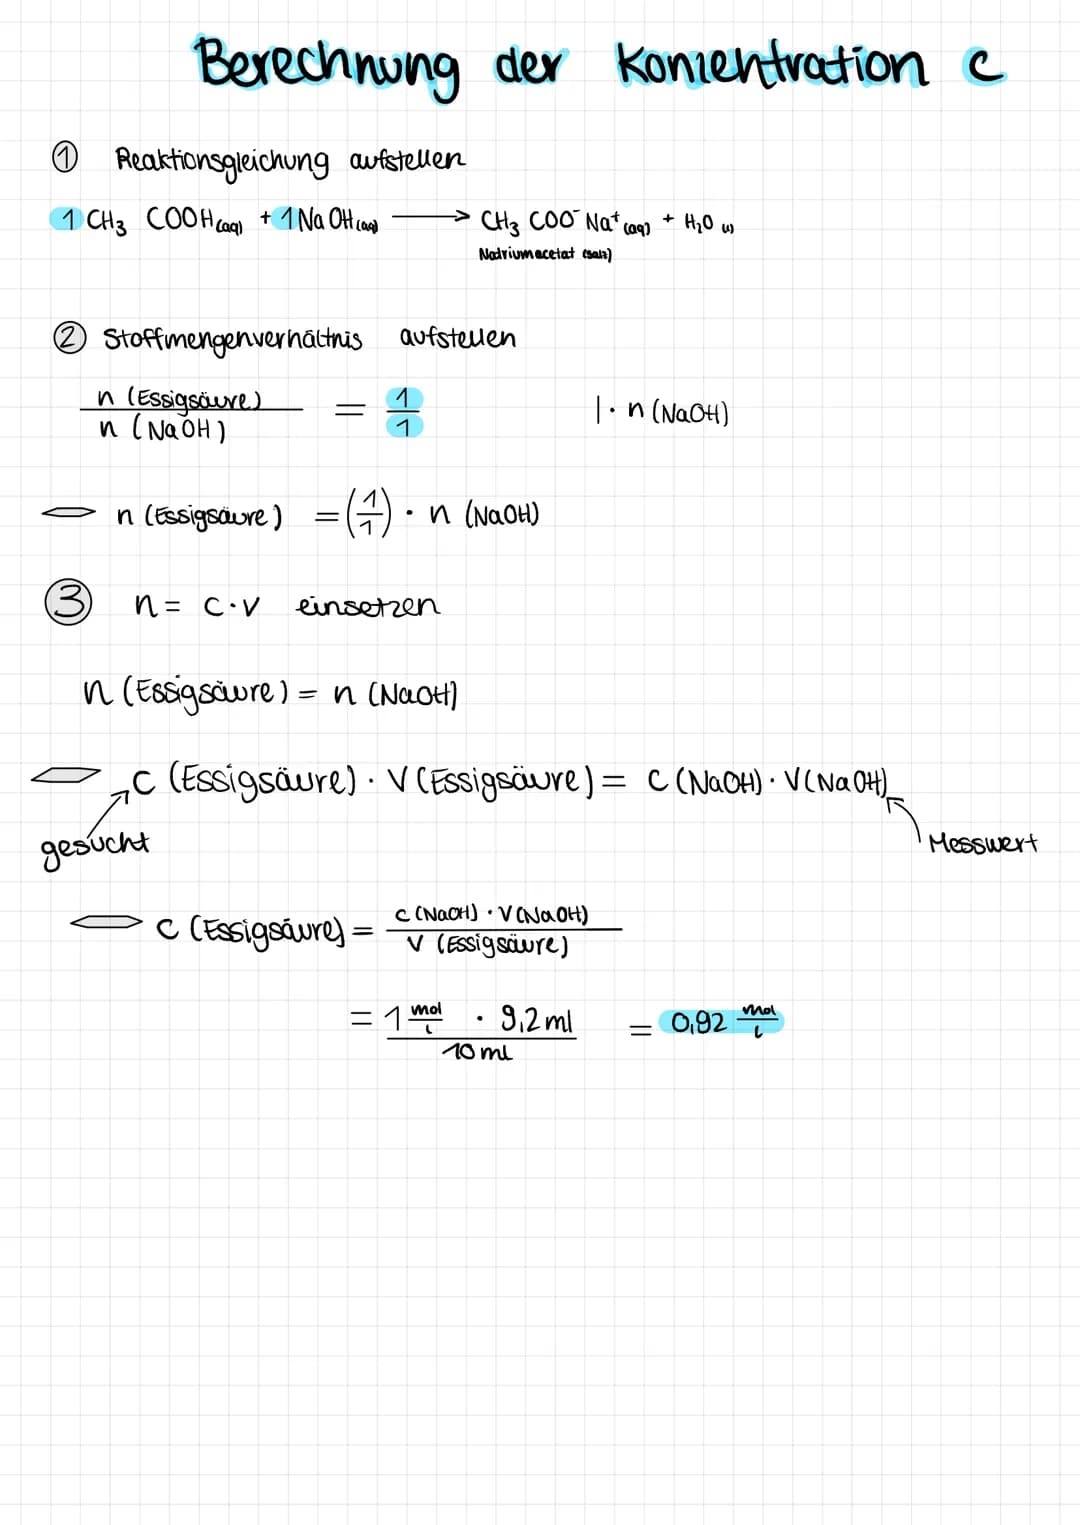 Berechnung der Konzentration c
① Reaktionsgleichung aufstellen
1 CH₃ COOH (aq) + 1 Na OH (aq) ⟶ CH₃ COO⁻ Na⁺ (aq) + H₂O (l)
Natriumacetat (Salz)
② Stoffmengenverhältnis aufstellen
n (Essigsäure) / n (NaOH) = 1/1 | · n (NaOH)
n (Essigsäure) = (1/1) · n (NaOH)
③ n = c · V einsetzen
n (Essigsäure) = n (NaOH)
c (Essigsäure) · V (Essigsäure) = c (NaOH) · V (NaOH)
gesucht Messwert
c (Essigsäure) = c (NaOH) · V (NaOH) / V (Essigsäure)
= 1 mol/l · 9,2 ml / 10 ml = 0,92 mol/l